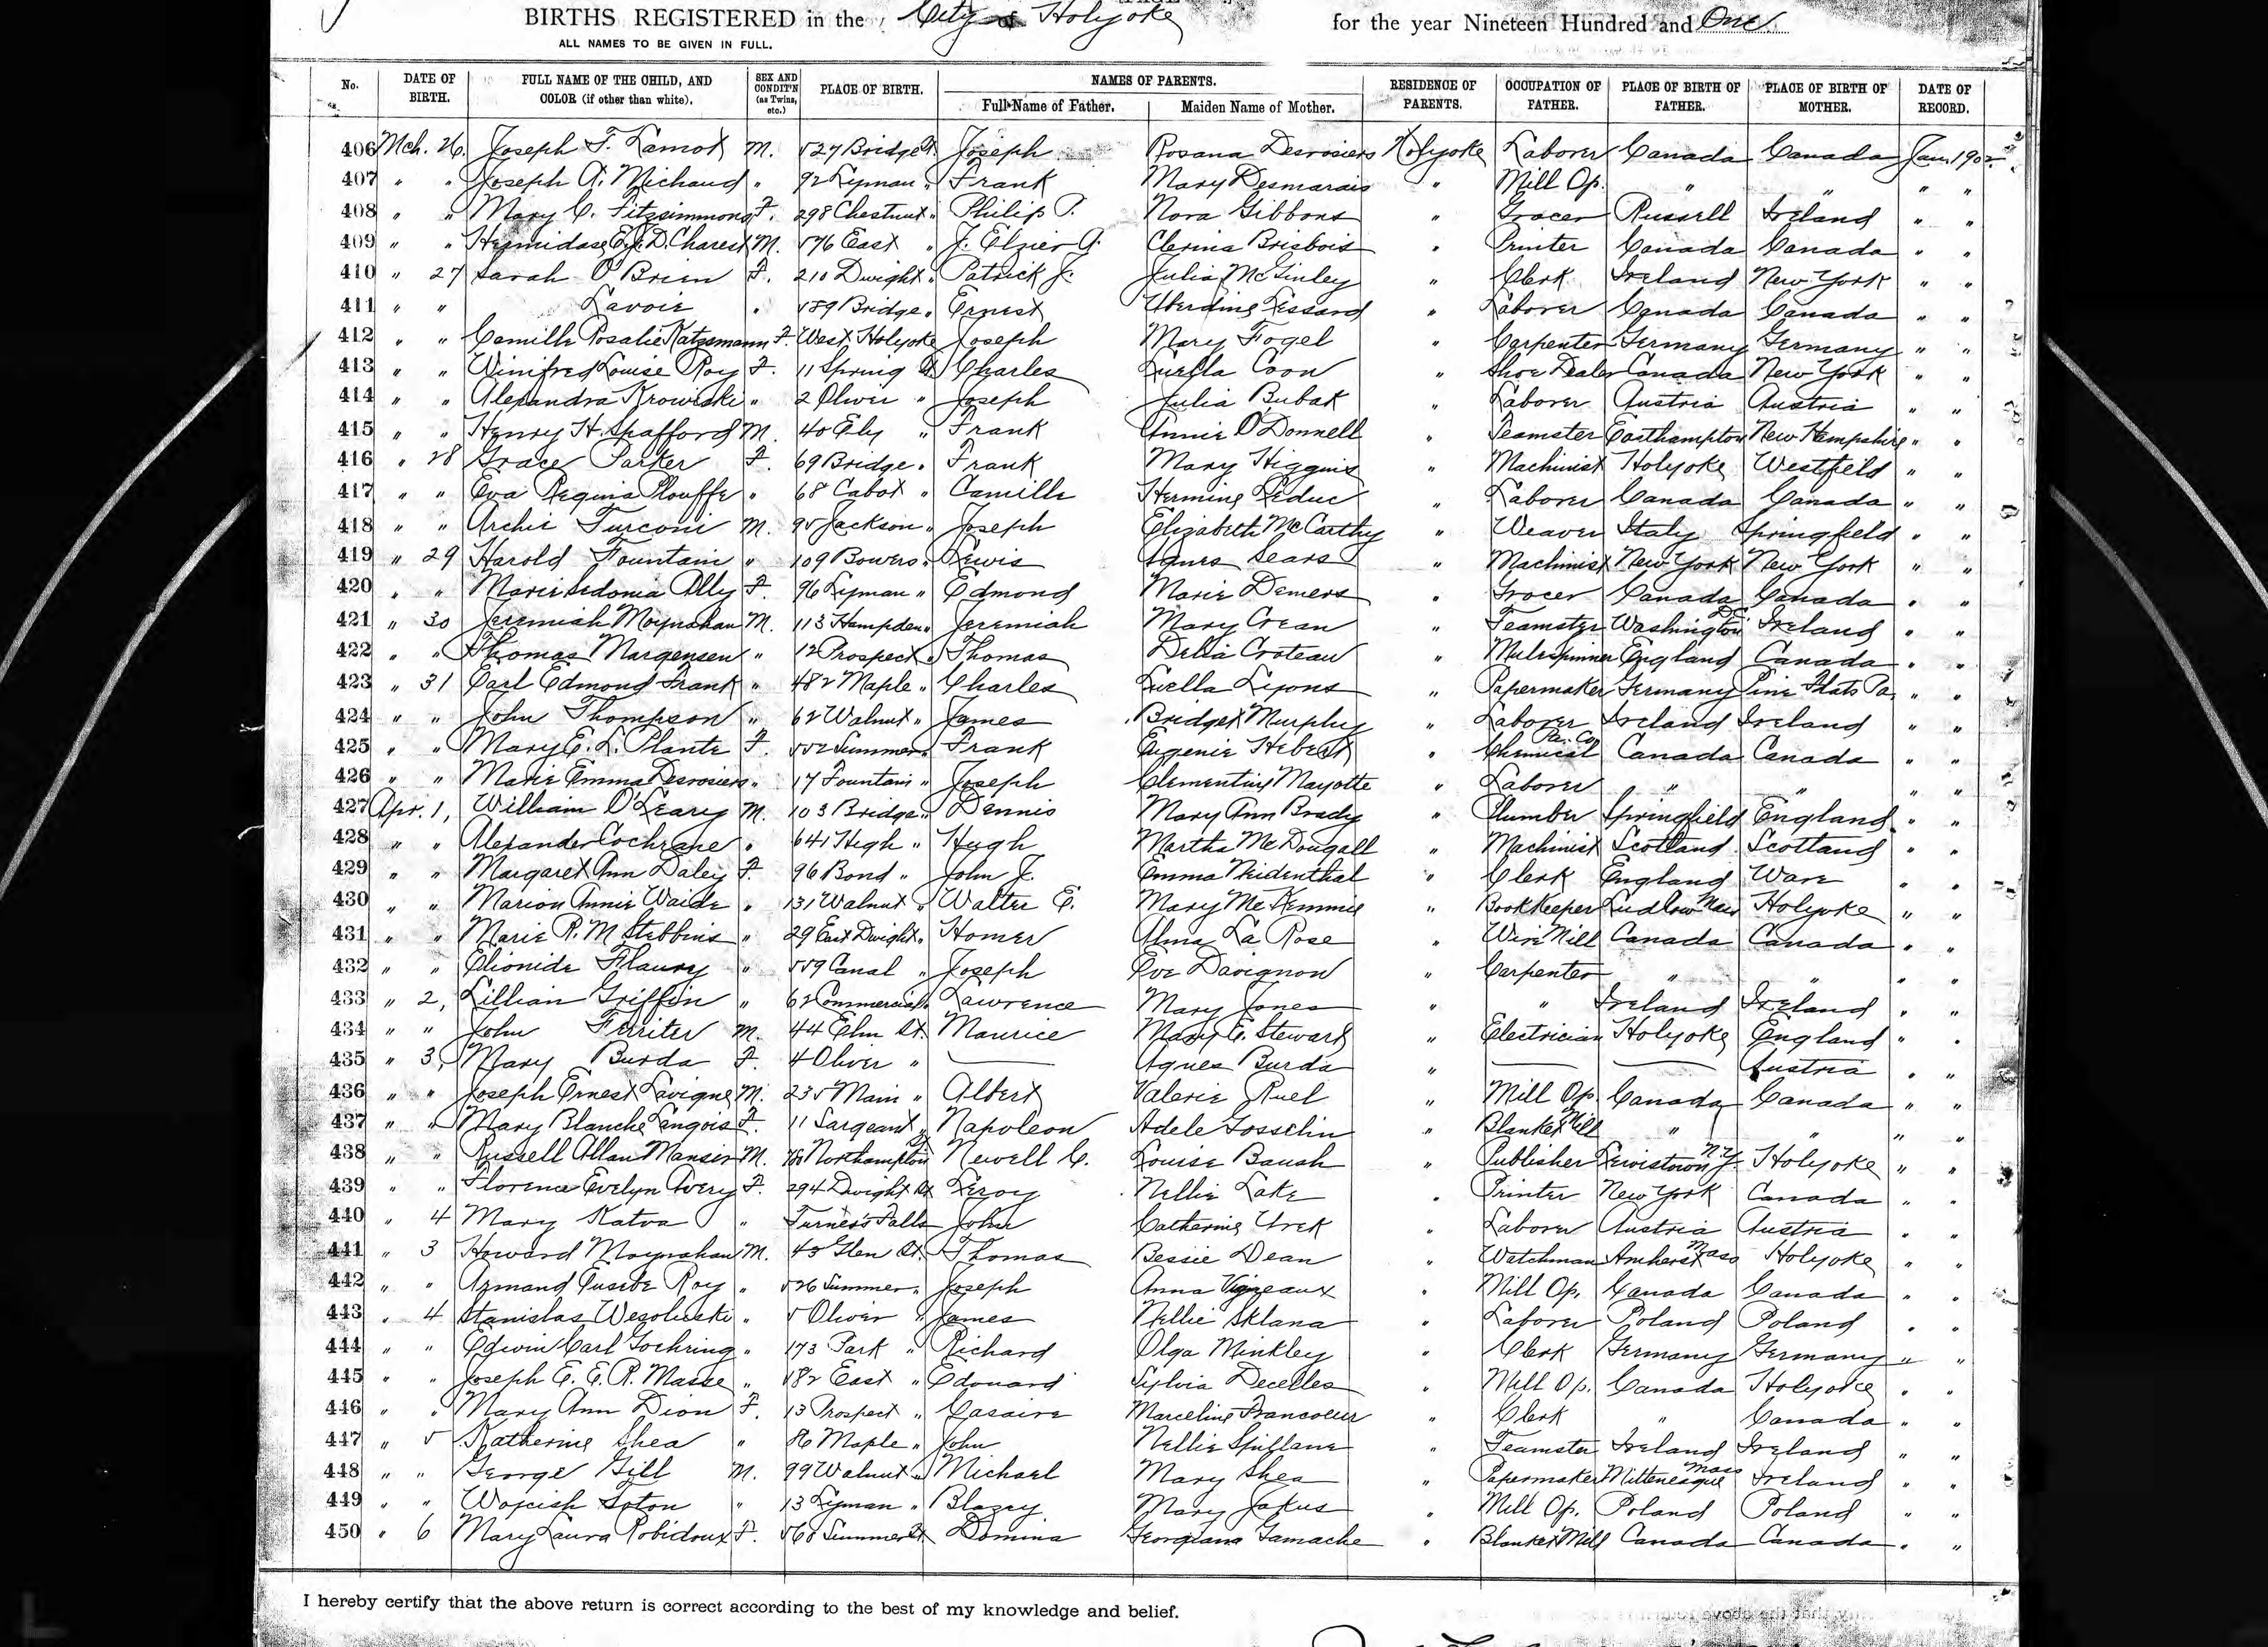 BIRTHS REGISTERED in the City of Holyoke for the year Nineteen Hundred and One.
ALL NAMES TO BE GIVEN IN FULL.
No. DATE OF BIRTH. FULL NAME OF THE CHILD, AND COLOR (if other than white). SEX AND CONDIT'N (as Twins, etc.) PLACE OF BIRTH. NAMES OF PARENTS. Full Name of Father. Maiden Name of Mother. RESIDENCE OF PARENTS. OCCUPATION OF FATHER. PLACE OF BIRTH OF FATHER. PLACE OF BIRTH OF MOTHER. DATE OF RECORD.
406 Mch. 26. Joseph F. Lamot M. 527 Bridge St. Joseph Rosana Desrosiers Holyoke Laborer Canada Canada Jan. 1902
407 " " Joseph A. Michaud " 92 Lyman " Frank Mary Desmarais " Mill Op. " " " "
408 " " Mary C. Fitzsimmons F. 298 Chestnut " Philip P. Nora Gibbons " Grocer Russell Ireland " "
409 " " Hermidase D. Charest M. 576 East " J. Elzier G. Clerina Brisbois " Printer Canada Canada " "
410 " 27 Sarah O'Brien F. 210 Dwight " Patrick J. Julia McGinley " Clerk Ireland New York " "
411 " " Lavoie " 589 Bridge " Ernest Lessard " Laborer Canada Canada " "
412 " " Camille Rosalie Katzsmann F. West Holyoke Joseph Mary Fogel " Carpenter Germany Germany " "
413 " " Winifred Louise Roy F. 11 Spring St Charles Luella Coon " Shoe Dealer Canada New York " "
414 " " Alexandra Krowiski " 2 Oliver " Joseph Julia Bubak " Laborer Austria Austria " "
415 " " Henry H. Spafford M. 40 Ely " Frank Annie O'Donnell " Teamster Easthampton New Hampshire " "
416 " 28 Grace Parker F. 69 Bridge " Frank Mary Higgins " Machinist Holyoke Westfield " "
417 " " Eva Regina Plouffe " 68 Cabot " Camille Hermine Leduc " Laborer Canada Canada " "
418 " " Archie Turconi M. 95 Jackson " Joseph Elizabeth McCarthy " Weaver Italy Springfield " "
419 " 29 Harold Fountain " 109 Bowers " Lewis Agnes Sears " Machinist New York New York " "
420 " " Marie Sedonia Ally F. 96 Lyman " Edmond Marie Demers " Grocer Canada Canada " "
421 " 30 Jeremiah Moynahan M. 113 Hampden " Jeremiah Mary Crean " Teamster Washington D.C. Ireland " "
422 " " Thomas Margensen " 12 Prospect " Thomas Delia Croteau " Mulespinner England Canada " "
423 " 31 Carl Edmond Frank " 482 Maple " Charles Luella Lyons " Papermaker Germany Pine Flats Pa. " "
424 " " John Thompson " 62 Walnut " James Bridget Murphy " Laborer Ireland Ireland " "
425 " " Mary E. L. Plante F. 552 Summer " Frank Eugenie Hebert " Chemical Pa. Co. Canada Canada " "
426 " " Marie Emma Desrosiers " 17 Fountain " Joseph Clementine Mayotte " Laborer " " " "
427 Apr. 1, William O'Leary M. 103 Bridge " Dennis Mary Ann Brady " Plumber Springfield England " "
428 " " Alexander Cochrane " 641 High " Hugh Martha McDougall " Machinist Scotland Scotland " "
429 " " Margaret Ann Daley F. 96 Bond " John J. Emma Neidenthal " Clerk England Ware " "
430 " " Marion Annie Waide " 131 Walnut " Walter E. Mary McKemmie " Bookkeeper Ludlow Mass Holyoke " "
431 " " Marie R. M Stebbins " 29 East Dwight " Homer Alma La Rose " Wire Mill Canada Canada " "
432 " " Elionide Flaury " 559 Canal " Joseph Eve Davignon " Carpenter " " " "
433 " 2, Lillian Griffin " 62 Commercial " Lawrence Mary Jones " " Ireland Ireland " "
434 " " John Ferriter M. 44 Elm St. Maurice Mary E. Steward " Electrician Holyoke England " "
435 " 3, Mary Burda F. 4 Oliver " — Agnes Burda " — — Austria " "
436 " " Joseph Ernest Lavigne M. 235 Main " Albert Valerie Ruel " Mill Op. Canada Canada " "
437 " " Mary Blanche Langois F. 11 Sargeant " Napoleon Adele Gosselin " Blanket Mill " " " "
438 " " Russell Allan Mansir M. Northampton St Newell C. Louise Baush " Publisher Lewistown N.Y. Holyoke " "
439 " " Florence Evelyn Avery F. 294 Dwight St Leroy Nellie Lake " Printer New York Canada " "
440 " 4 Mary Katva " Turner's Falls John Catherine Urek " Laborer Austria Austria " "
441 " 3 Howard Moynahan M. 45 Glen St. Thomas Bessie Dean " Watchman Amherst Mass Holyoke " "
442 " " Armand Eusebe Roy " 526 Summer " Joseph Anna Vigneaux " Mill Op. Canada Canada " "
443 " 4 Stanislas Wesolieski " 5 Oliver " James Nellie Sklana " Laborer Poland Poland " "
444 " " Edwin Carl Goehring " 173 Park " Richard Olga Minkley " Clerk Germany Germany " "
445 " " Joseph E. E. R. Masse " 582 East " Edouard Sylvia Decelles " Mill Op. Canada Holyoke " "
446 " " Mary Ann Dion F. 13 Prospect " Casaire Marceline Francoeur " Clerk " Canada " "
447 " 5 Katherine Shea " 86 Maple " John Nellie Spillane " Teamster Ireland Ireland " "
448 " " George Gill M. 99 Walnut " Michael Mary Shea " Papermaker Mitteneague Mass Ireland " "
449 " " Wojcish Soton " 13 Lyman " Blazey Mary Jakus " Mill Op. Poland Poland " "
450 " 6 Mary Laura Robidoux F. 568 Summer St Domina Georgiana Gamache " Blanket Mill Canada Canada " "
I hereby certify that the above return is correct according to the best of my knowledge and belief.